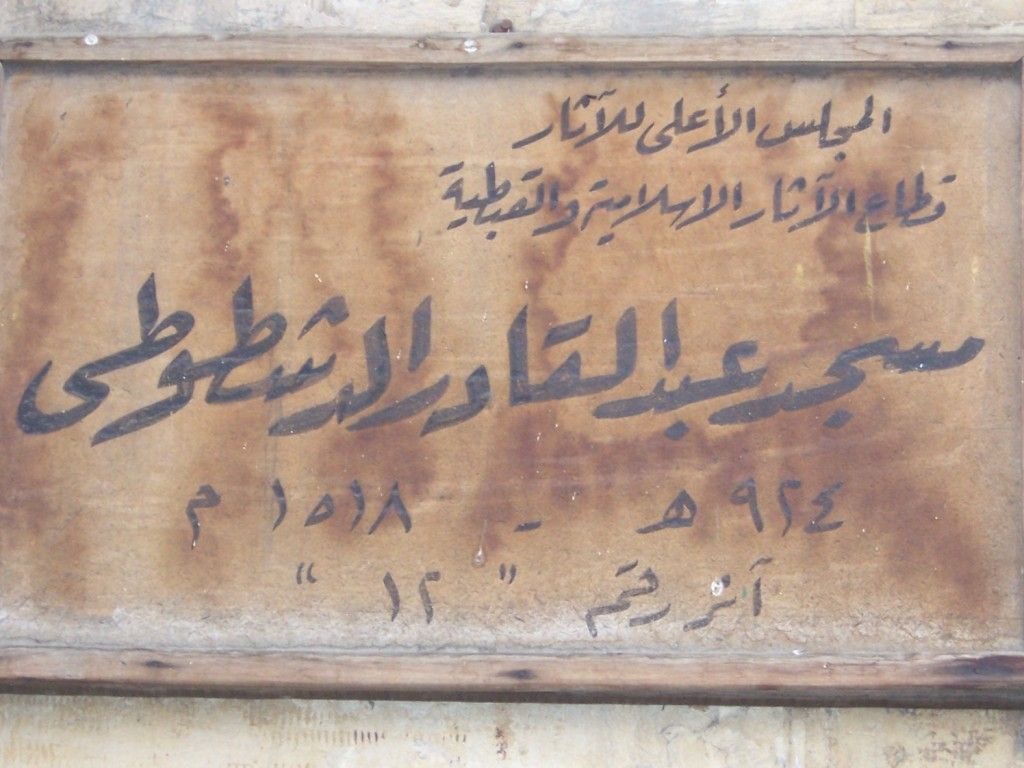 المجلس الأعلى للآثار
قطاع الآثار الاسلامية والقبطية
مسجد عبد القادر الدشطوطى
٩٢٤ هـ - ١٥١٨ م
آثر رقم " ١٢ "